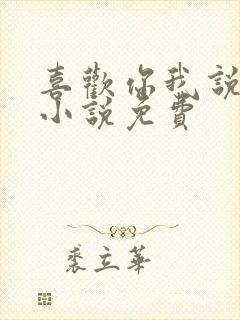 喜歡你我說
小說免費
裘立華